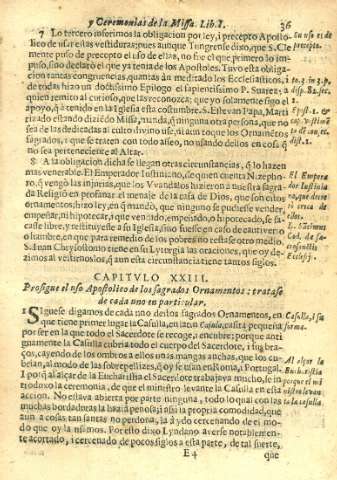 y Ceremonias de la Missa. Lib. I. 36
7 Lo tercero inferimos la obligacion por ley, i precepto Aposto-
lico de usar estas vestiduras; pues aunque Tungrense dixo, que S. Cle
mente puso de precepto el uso de ellas, no fue el primero lo im-
puso, sino declarò el que ya tenia de los Apostoles. Tuvo esta obliga-
cion tantas congruencias, quantas àn meditado los Ecclesiasticos,
de todas hizo un doctissimo Epilogo el sapientissimo P. Suarez, à
quien remito al curioso, que las reconozca; que yo solamente sigo el
apoyo, q̃ à tenido en la Iglesia esta costumbre. S. Estevan Papa, Marti
rizado estando diziẽdo Missa, mãda, q̃ ninguna otra persona, que no
sea de las dedicadas al culto divino use, ni aun toque los Ornamẽtos
sagrados, i que se traten con todo asseo, no usando dellos en cosa q̃
no sea perteneciente al Altar.
8 A la obligacion dicha se llegan otras circunstancias, q̃ lo hazen
mas venerable. El Emperador Iustiniano, se quen cuenta Nizepho-
ro, q̃ vengò las injurias, que los Vvandalos huzieron à nuestra sagra-
da Religiõ en profanar el menaje de la casa de Dios, que son estos
ornamentos; hizo ley, en q̃ mandò, que ninguno se pudiesse vender,
empeñar, ni hipotecar, i que vendado, empeñado, o hipotecado, se sa-
casse libre, y restituyesse a su Iglesia, sino fuesse en caso de cautivero
o hambre, en que para remedio de los pobres no resta se otro medio.
S. Iuan Chrysostomo tiene en su Lyturgia las oraciones, que oy de-
zimos al vestirnos, q̃ aun esta circunstancia tiene tantos siglos.
En su uso ài
precepto.
i to. 3. in 3. p.
disp. 82. sec.
Epist. 1. &
dist. 1.
El Empera
dor Iustinia
no, que dicie
L. Socimus
Cal. da sa-
crosanctis
Ecclesijs.
CAPITVLO XXIII.
Prosigue el uso Apostolico de los sagrados Ornamentos: tratase
de cada uno en particular.
1 Siguese digamos de cada uno destos sagrados Ornamentos, en
que tiene primer lugar la Casulla, en Latin Casula, casita pequeña
por ser en la que todo el Sacerdote se encoge, i encubre; porque anti-
guamente la Casulla cubria todo el cuerpo del Sacerdote, i sus bra-
ços, cayendo de los ombros a ellos unas mangas anchas, que los cu-
brian, al modo de las sobrepellizes, q̃ oy se usan en Roma, i Portugal.
I porq̃ al alçar de la Eucharistia el Sacerdote trabajava mucho, se in
troduxo la ceremonia, de que el ministro levante la Casulla en esta
accion. No estava abierta por parte ninguna, todo lo qual con las
muchas bordaderas la hazia penosa; i assi la propria comodidad, que
aun a cosas tan santas no perdona, la à ydo cercenando de el mo-
do que oy la usamos. Por esto dixo Lyndano averse notablemen-
te acortado, i cercenado de pocos siglos a esta parte, de tal suerte,
Casulla, i su
forma.
Al alçar la
porque el mi
nistro levan
ta la casulla.
E 4 que